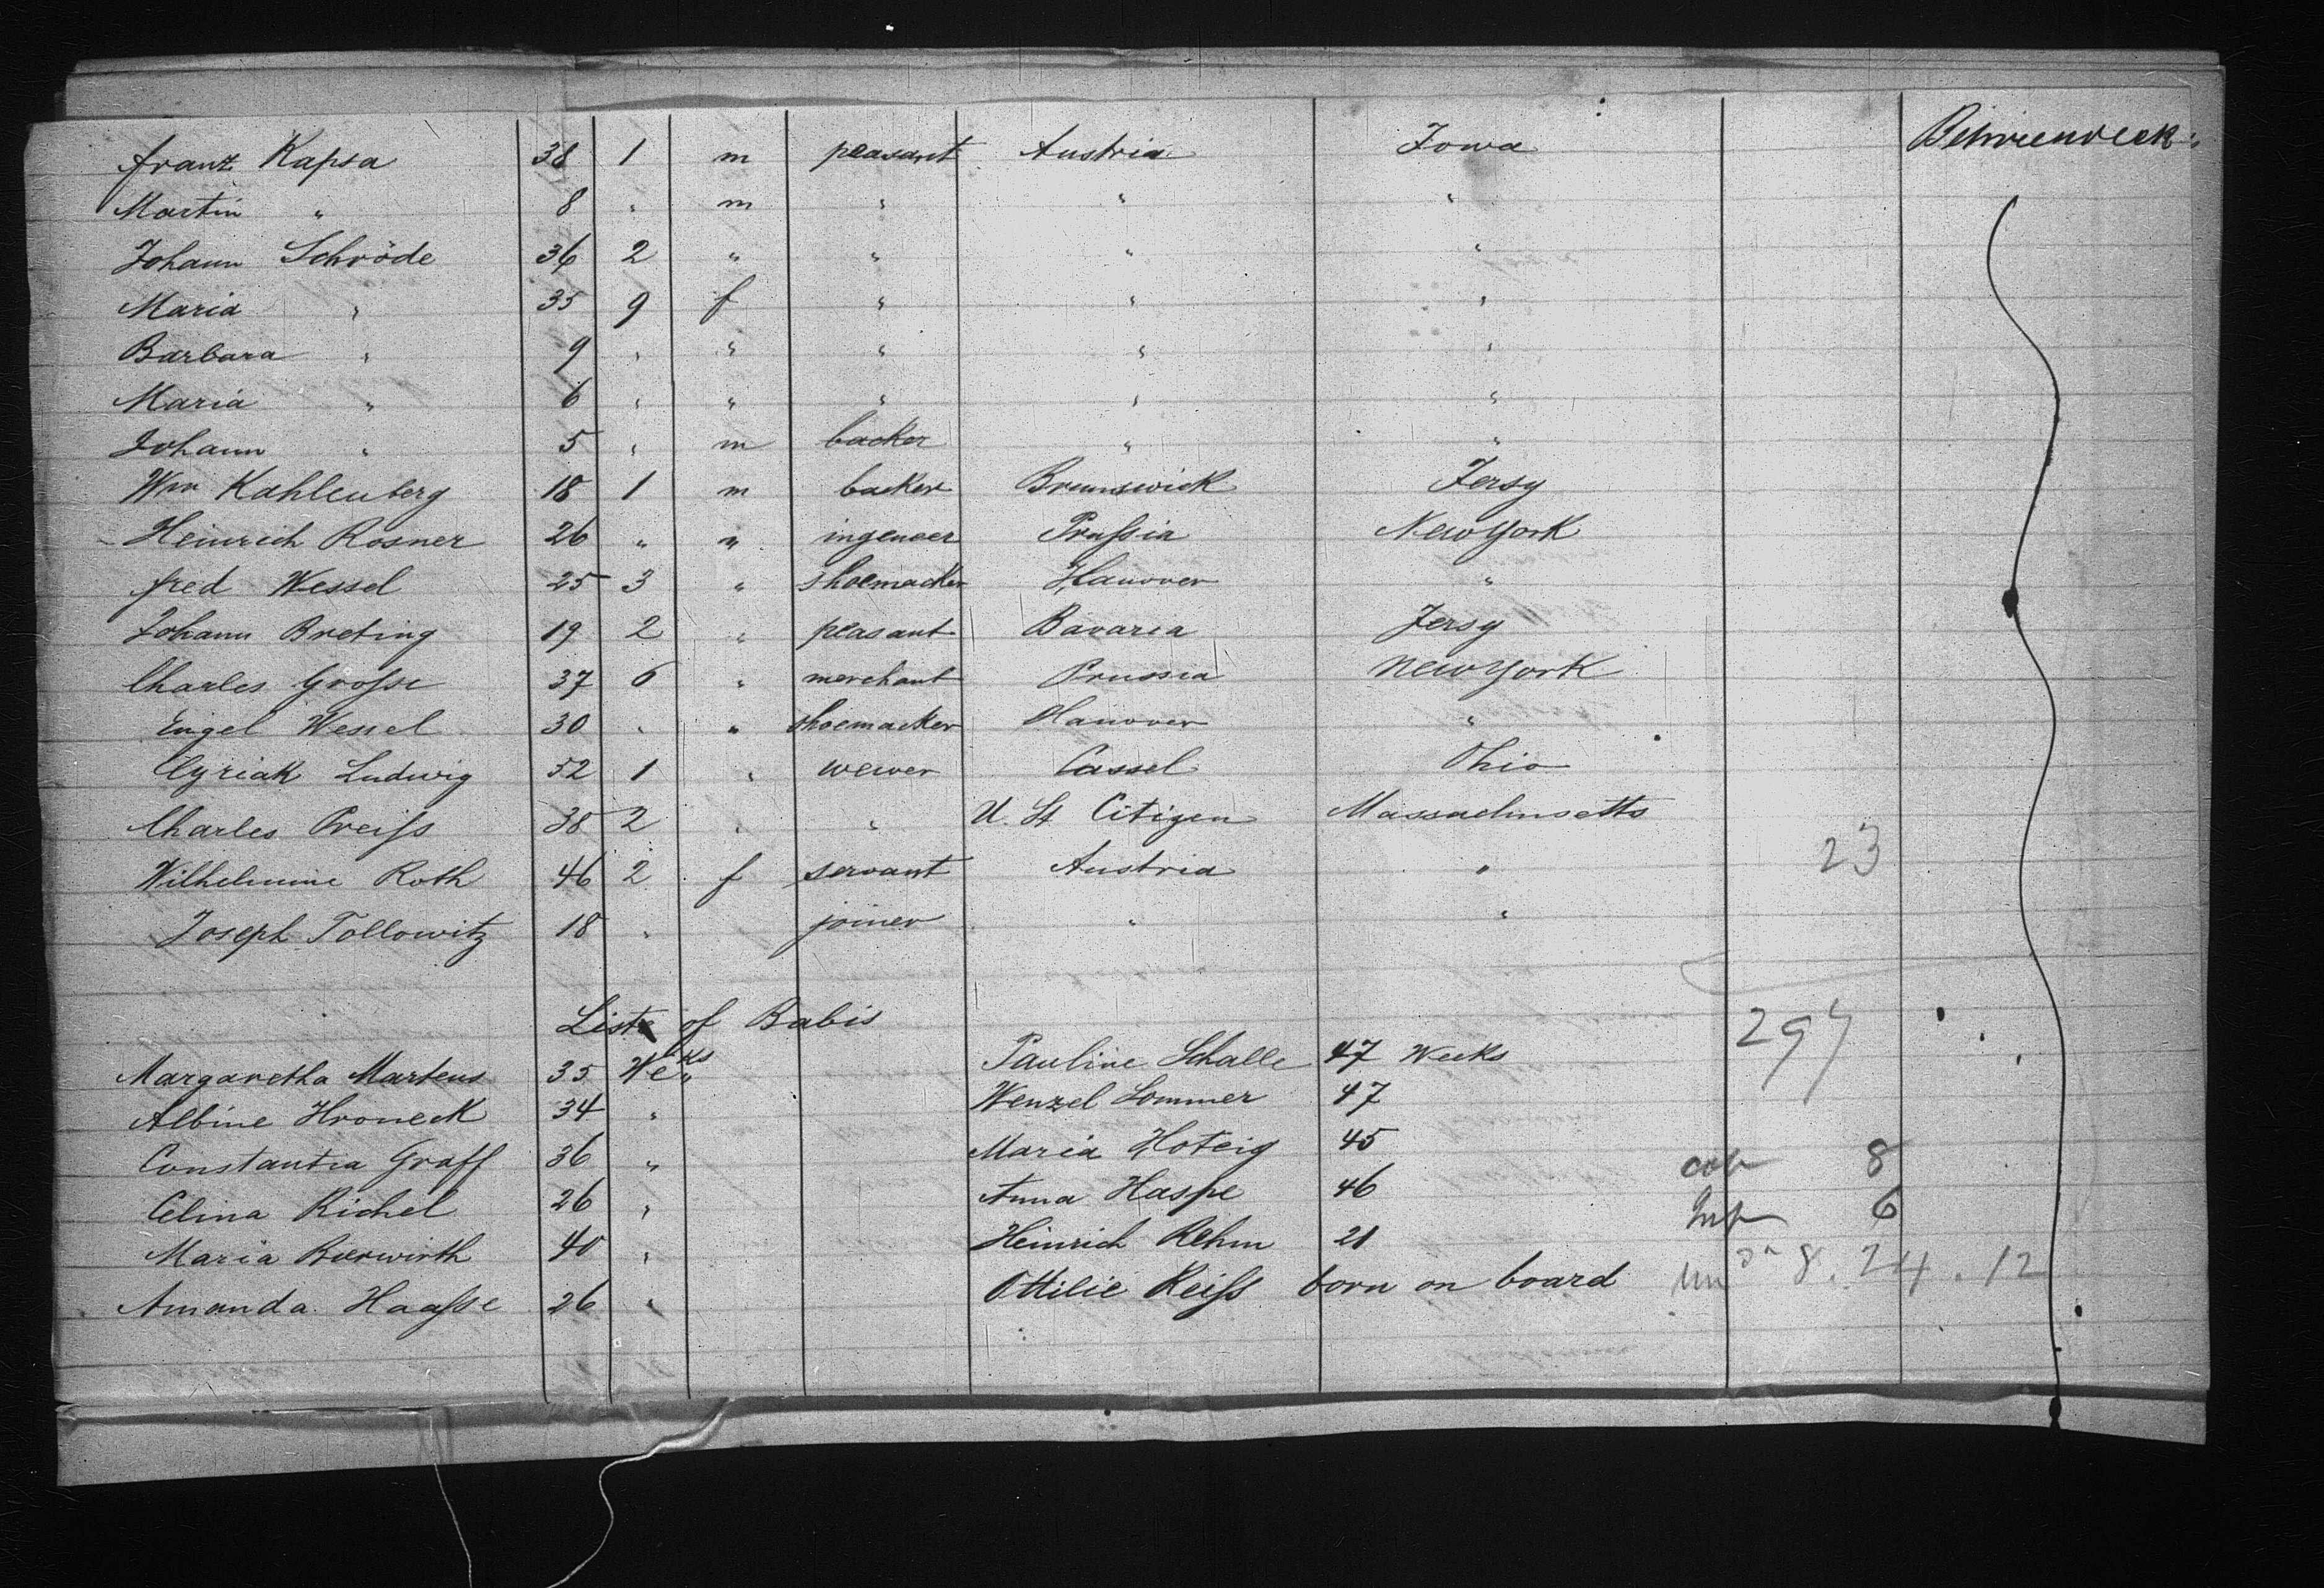 Franz Kapsa 38 1 m peasant Austria Iowa Betweendeck
Martin " 8 " m " " "
Johann Schröde 36 2 " " " "
Maria " 35 9 f " " "
Barbara " 9 " " " " "
Maria " 6 " " " " "
Johann " 5 " m backer " "
Wm Kahlenberg 18 1 m backer Brunswick Jersy
Heinrich Rosner 26 " " ingeneer Prussia New York
fred Wessel 25 3 " shoemacker Hanover "
Johann Breting 19 2 " peasant Bavaria Jersy
Charles Grosse 37 6 " merchant Prussia New York
Engel Wessel 30 " " shoemacker Hanover "
Cyriak Ludwig 52 1 " wewer Cassel Ohio
Charles Preiss 38 2 " " U. St Citizen Massachusetts
Wilhelmine Roth 46 2 f servant Austria " 23
Joseph Tollowitz 18 " joiner " "
List of Babis
Margaretha Martens 35 Weeks Pauline Schalle 47 Weeks 297
Albine Hroneck 34 " Wenzel Sommer 47
Constantia Graff 36 " Maria Hoteig 45 8
Celina Richel 26 " Anna Haspe 46 Inf 6
Maria Bierwirth 40 " Heinrich Rehm 21
Amanda Haasse 26 " Ottilie Reiss born on board 8. 24. 12